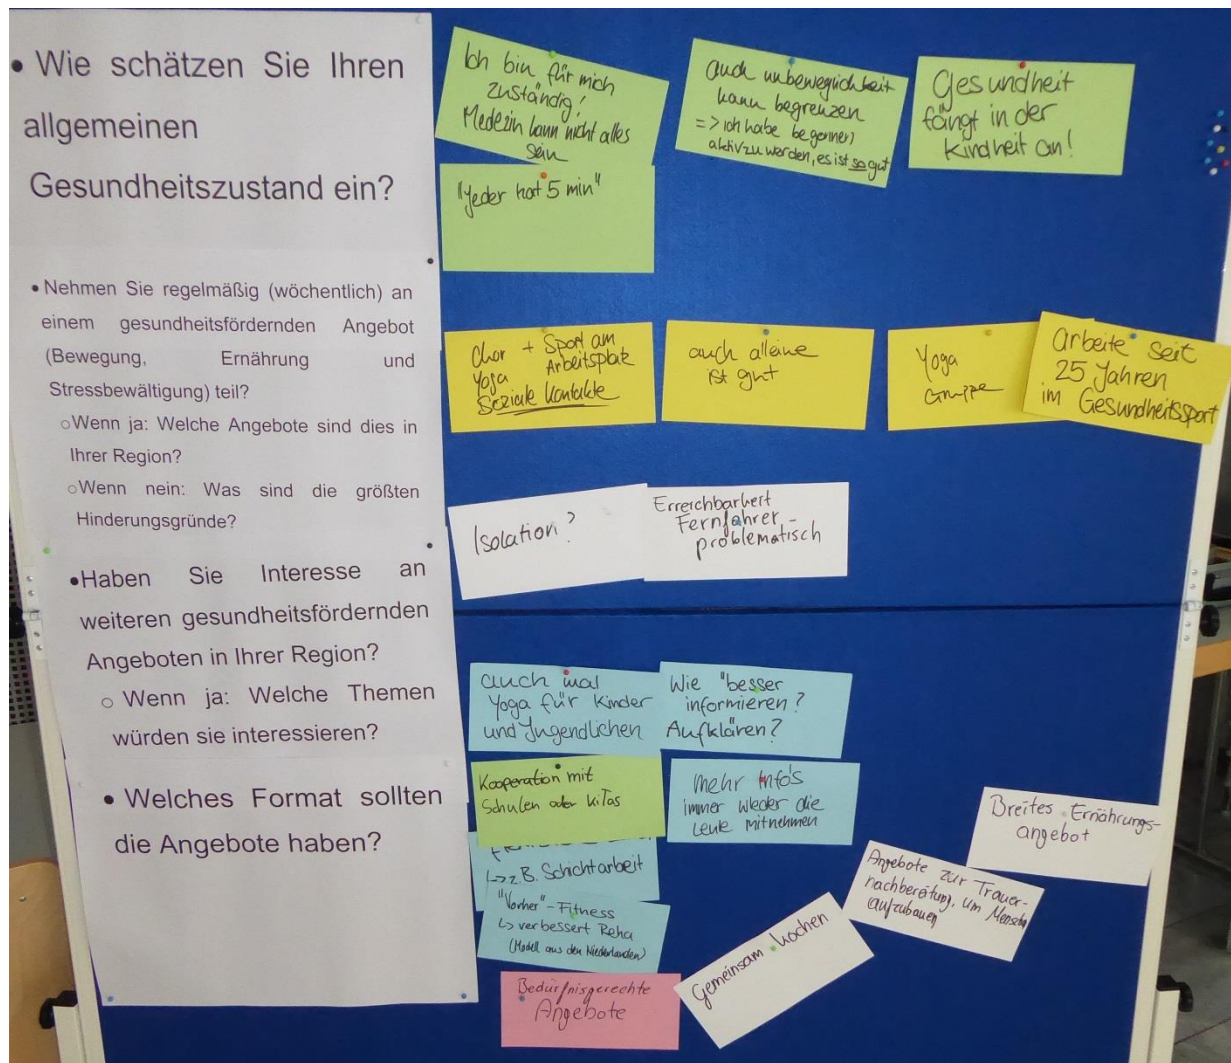 • Wie schätzen Sie Ihren
allgemeinen
Gesundheitszustand ein?
• Nehmen Sie regelmäßig (wöchentlich) an
einem gesundheitsfördernden Angebot
(Bewegung, Ernährung und
Stressbewältigung) teil?
○Wenn ja: Welche Angebote sind dies in
Ihrer Region?
○Wenn nein: Was sind die größten
Hinderungsgründe?
•Haben Sie Interesse an
weiteren gesundheitsfördernden
Angeboten in Ihrer Region?
○ Wenn ja: Welche Themen
würden sie interessieren?
• Welches Format sollten
die Angebote haben?
Ich bin für mich
zuständig!
Medezin kann nicht alles
sein
auch unbeweglichkeit
kann begrenzen
=> ich habe begonnen
aktiv zu werden, es ist so gut
Gesundheit
fängt in der
Kindheit an!
"Jeder hat 5 min"
Chor + Sport am
Yoga Arbeitsplatz
Soziale Kontakte
auch alleine
ist gut
Yoga
Gruppe
Arbeite seit
25 Jahren
im Gesundheitssport
Isolation?
Erreichbarkeit
Fernfahrer -
problematisch
auch mal
Yoga für Kinder
und Jugendlichen
Wie "besser
informieren?
Aufklären?
Kooperation mit
Schulen oder KiTas
mehr Info's
immer wieder die
Leute mitnehmen
↳ z.B. Schichtarbeit
"Vorher"-Fitness
↳ verbessert Reha
(Modell aus den Niederlanden)
Bedürfnisgerechte
Angebote
Gemeinsam kochen
Angebote zur Trauer-
nachberatung, um Menschen
aufzubauen
Breites Ernährungs-
angebot